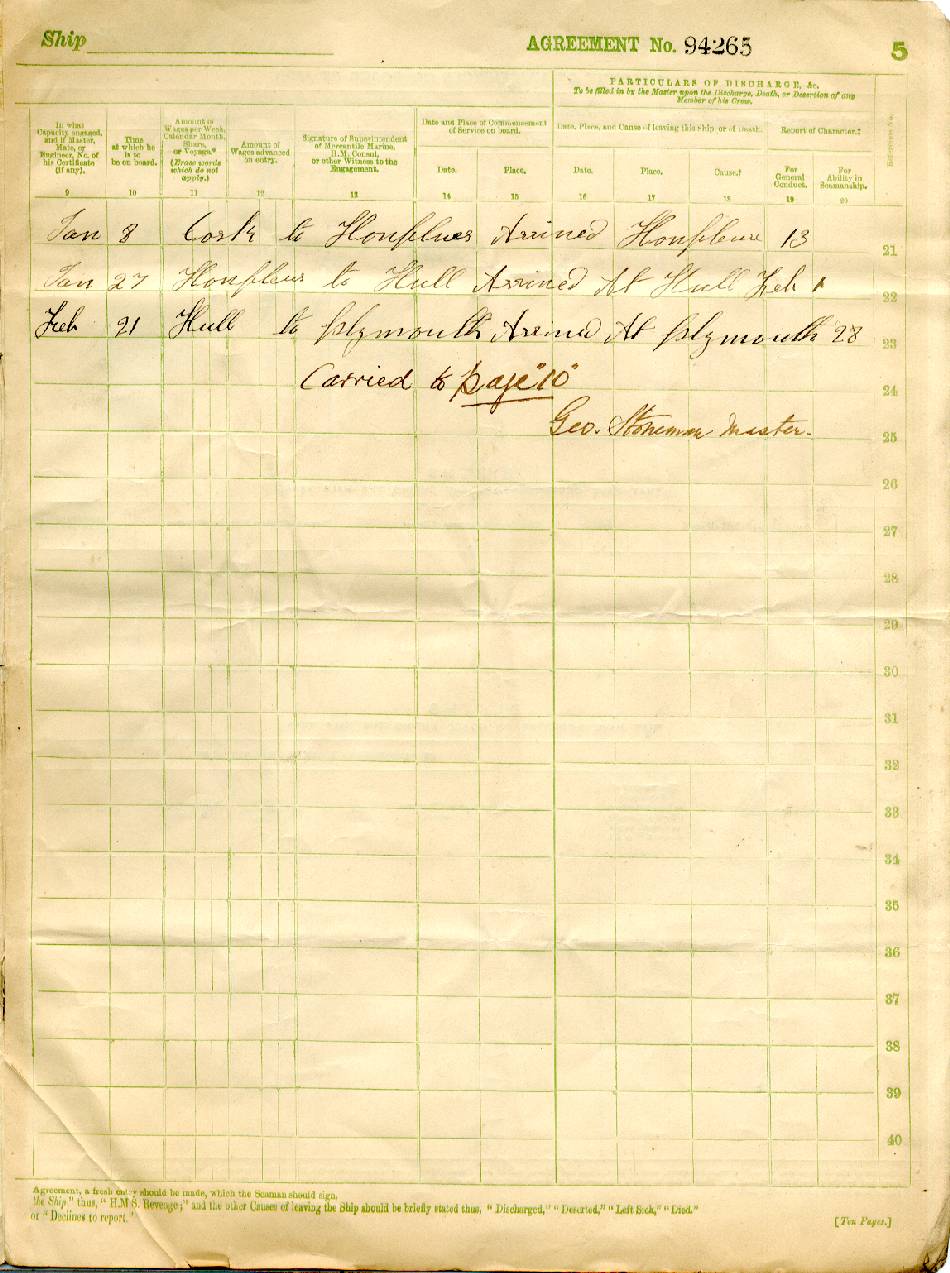 Ship
AGREEMENT No. 94265
5
PARTICULARS OF DISCHARGE, &c.
To be filled in by the Master upon the Discharge, Death, or Desertion of any
Member of his Crew.
In what
Capacity engaged,
and if Master,
Mate, or
Engineer, No. of
his Certificate
(if any).
Time
at which he
is to
be on board.
Amount of
Wages per Week,
Calendar Month,
Share,
or Voyage.*
(Erase words
which do not
apply.)
Amount of
Wages advanced
on entry.
Signature of Superintendent
of Mercantile Marine,
H.M. Consul,
or other Witness to the
Engagement.
Date and Place of Commencement
of Service on board.
Date.
Place.
Date, Place, and Cause of leaving this Ship, or of Death.
Date.
Place.
Cause.†
Report of Character.‡
For
General
Conduct.
For
Ability in
Seamanship.
Reference No.
9 10 11 12 13 14 15 16 17 18 19 20
Jan 8 Cork to Honfluer Arrived Honfleur 13 21
Jan 27 Honfleur to Hull Arrived At Hull Feb 1 22
Feb 21 Hull to Plymouth Arrived At Plymouth 28 23
Carried to page "10" 24
Geo. Stoneman Master. 25
26
27
28
29
30
31
32
33
34
35
36
37
38
39
40
Agreement, a fresh entry should be made, which the Seaman should sign.
the Ship" thus, "H.M.S. Revenge;" and the other Causes of leaving the Ship should be briefly stated thus, "Discharged," "Deserted," "Left Sick," "Died."
or "Declines to report."
[Ten Pages.]